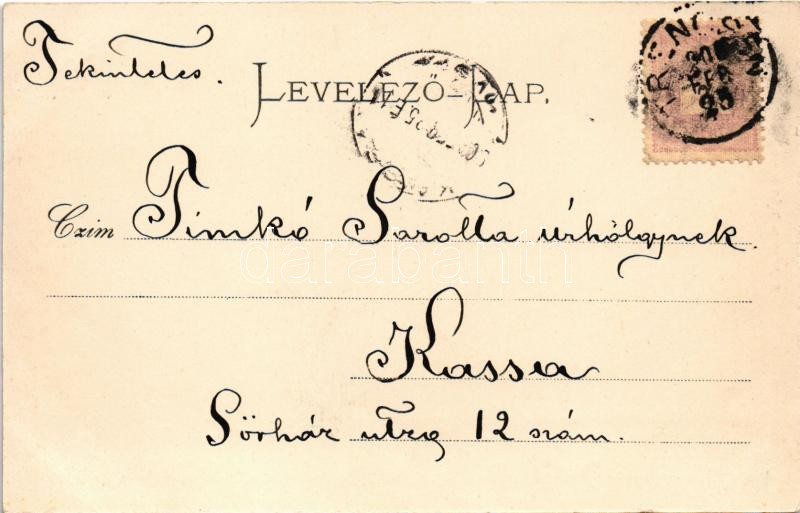 Tekintetes.
LEVELEZŐ-LAP.
Czim Timkó Sarolta úrhölgynek.
Kassa
Sörház utza 12 szám.
darabanth